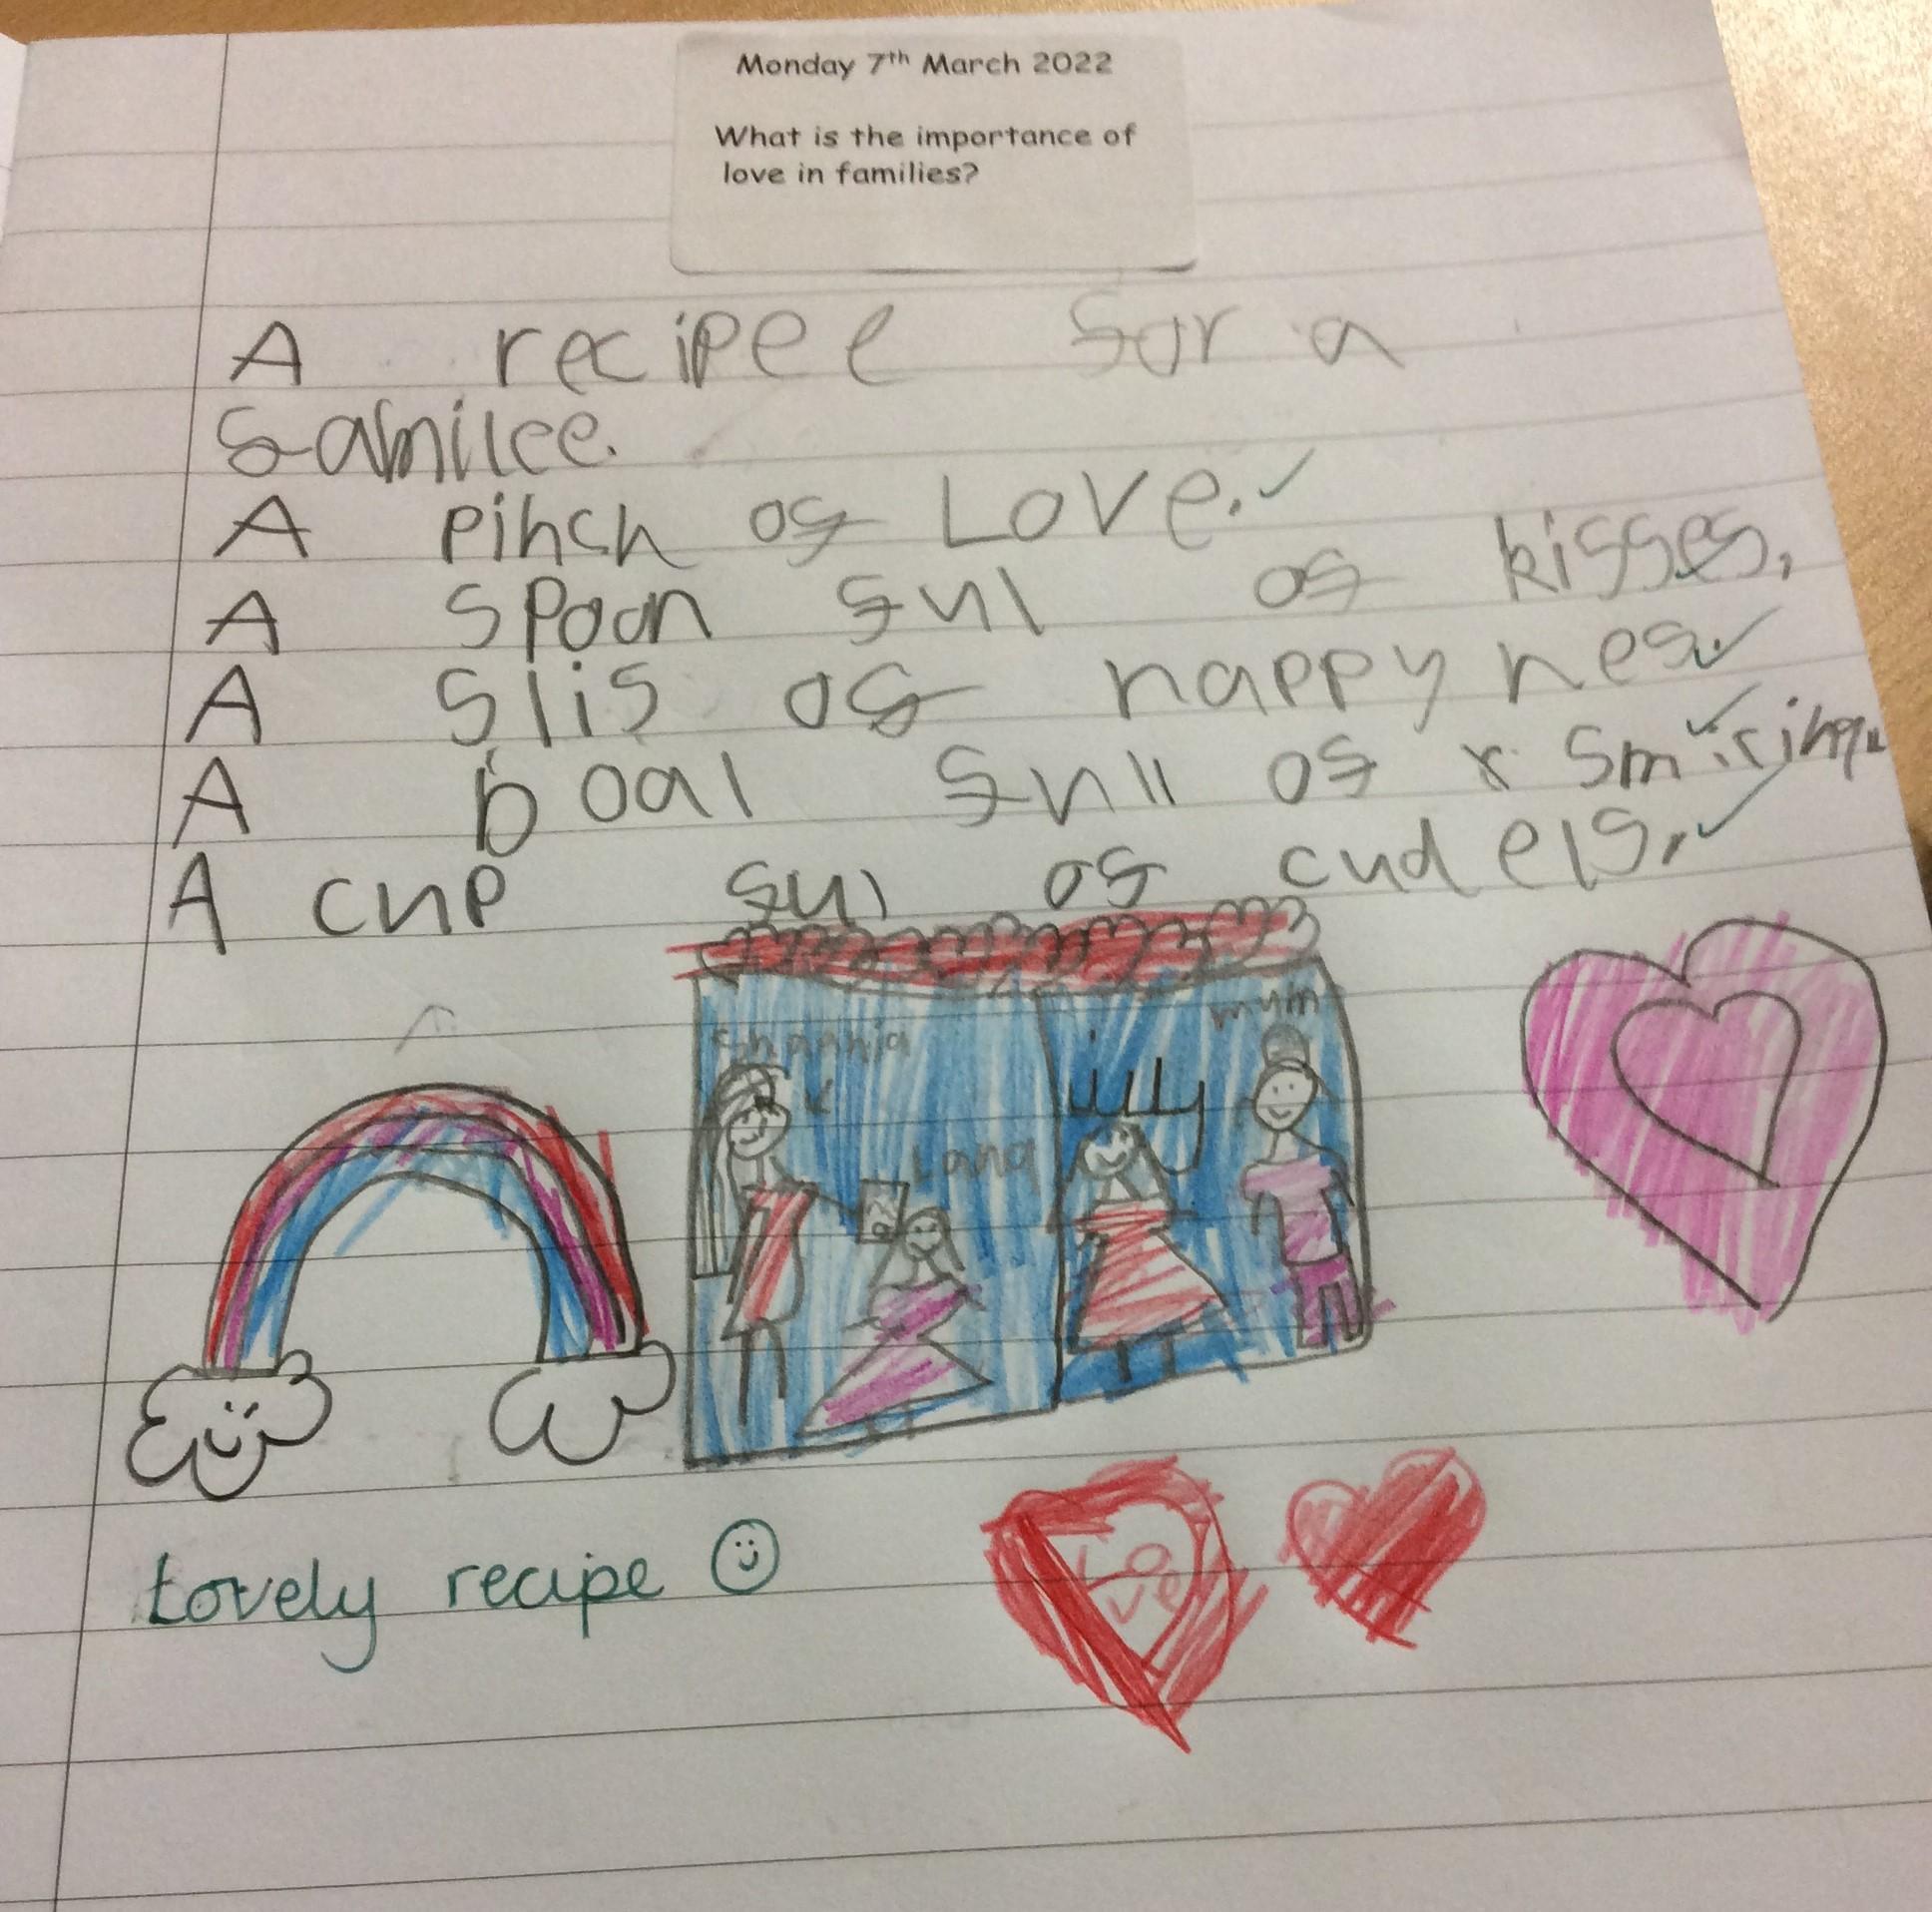 Monday 7th March 2022
What is the importance of
love in families?
A recipee for a
famileee.
A pinch of Love.
A spoon ful of kisses,
A slis of happy nes.
A boal full of
A cup ful of cudels.
Shaania
mum
jilly
Lana
Love
Lovely recipe